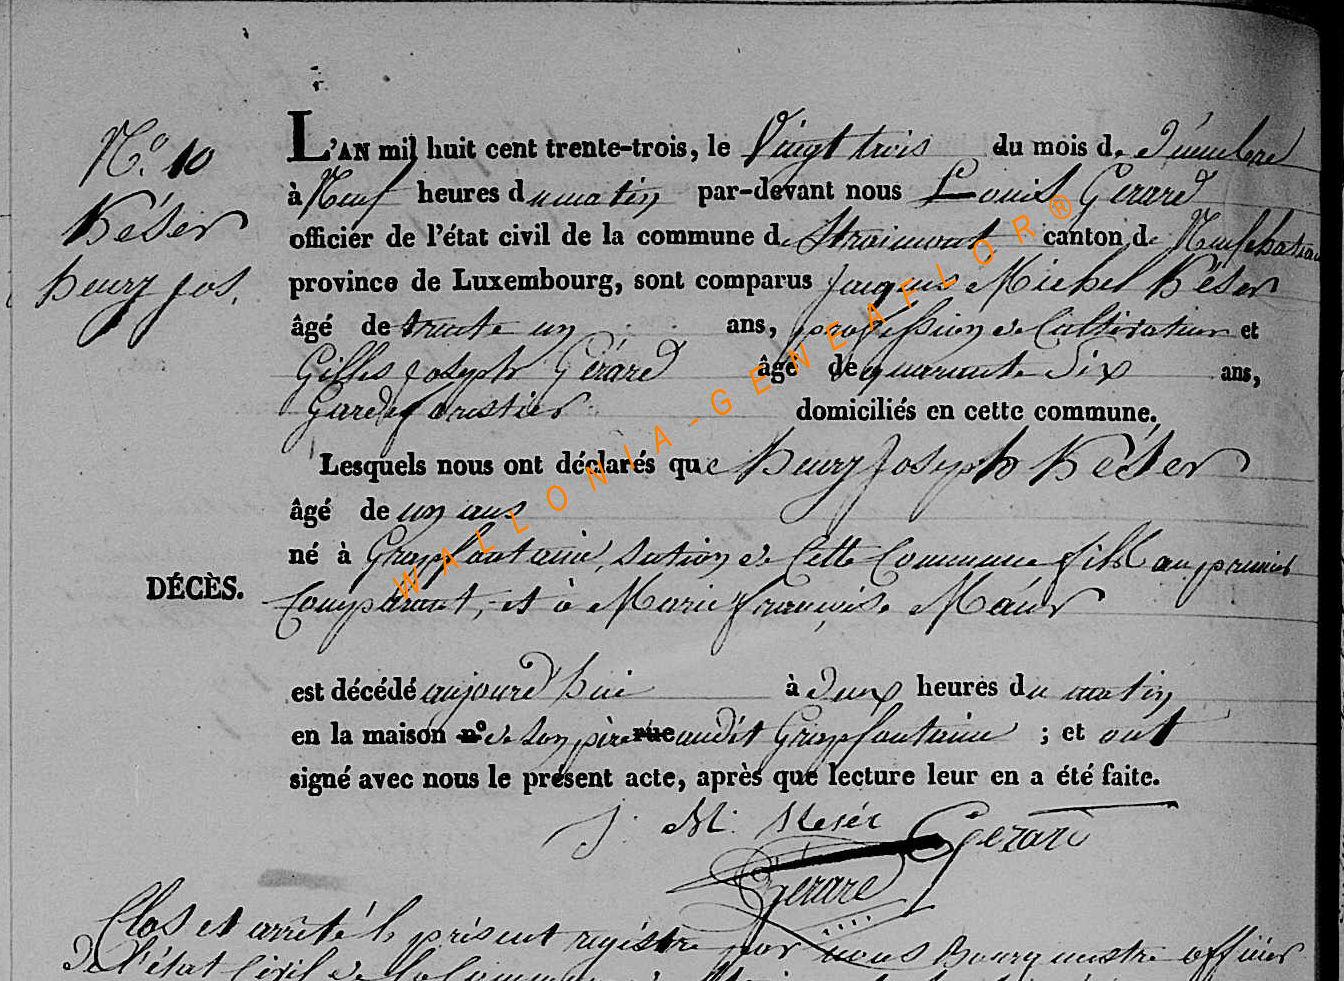 N.º 10
Késer
henry jos.
DÉCÈS.
L'AN mil huit cent trente-trois, le Vingt trois du mois de Décembre
à Neuf heures du matin par-devant nous Louis Gérard
officier de l'état civil de la commune de Straimont canton de Neufchateau
province de Luxembourg, sont comparus Jacques Michel Késer
âgé de trente un ans, profession de Cultivateur et
Gilles Joseph Gérard âgé de quarante Six ans,
Garde forestier domiciliés en cette commune.
Lesquels nous ont déclarés que henry Joseph Késer
âgé de un ans
né à Grapfontaine, Section de Cette Commune fils au premier
Comparant, et à Marie françoise Maur
est décédé aujourd'hui à Deux heures du matin
en la maison n° de Son père rue audit Grapfontaine ; et ont
signé avec nous le présent acte, après que lecture leur en a été faite.
J. M. Kesér Gerard
Gérard
Clos et arrêté le présent registre par nous Bourgmestre officier
de l'état Civil de la Commune
WALLONIA-GENEAFLOR®